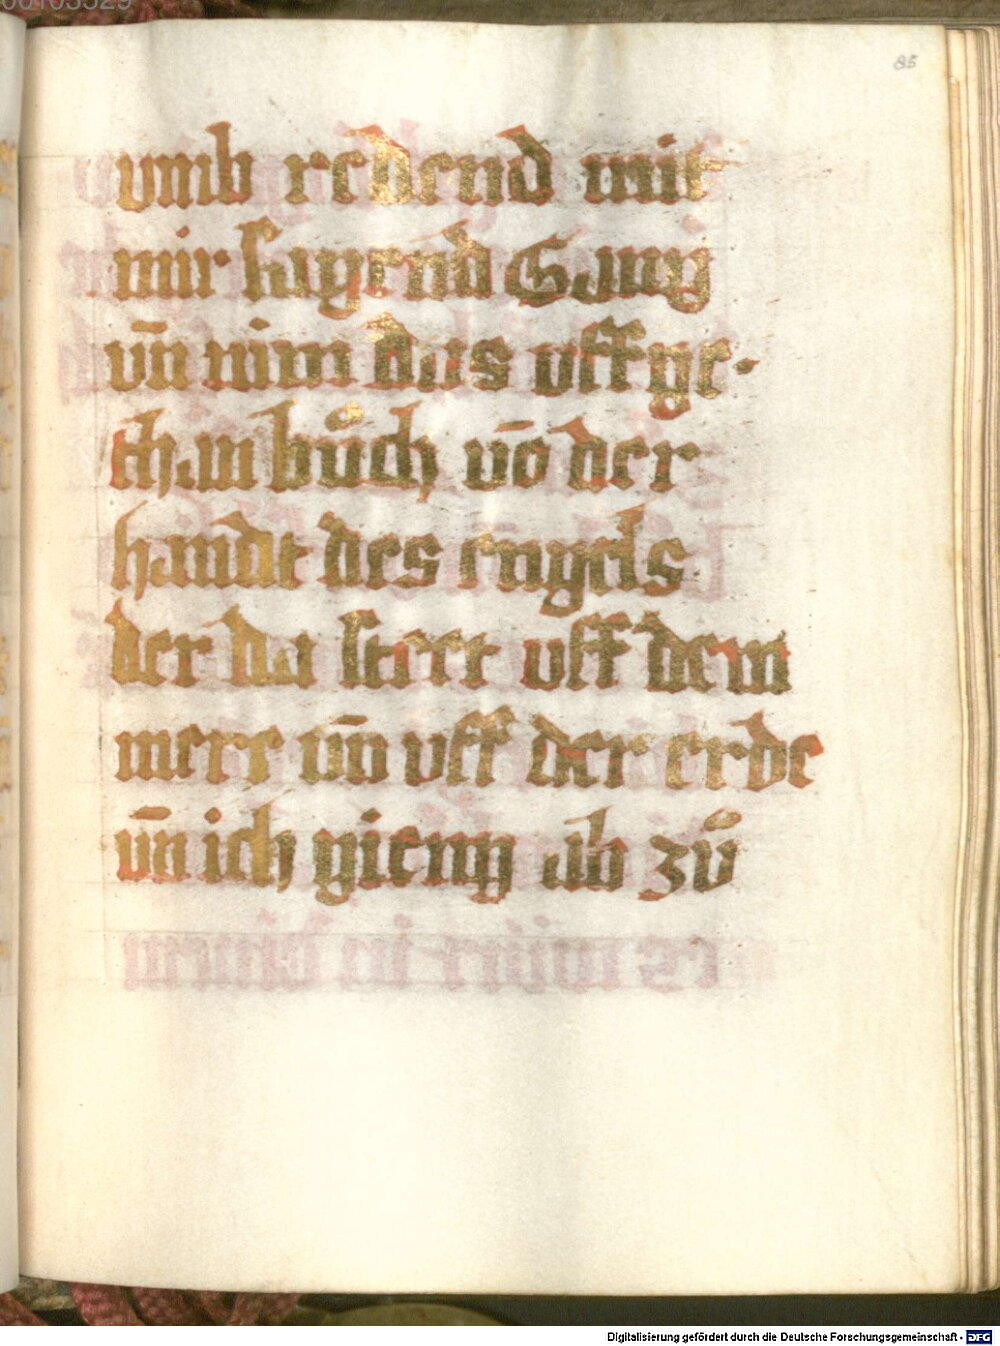 85
vmb redend mit
mir sagend Gang
vn̄ nim das vff ge-
than bůch vō der
handt des engels
der da stett vff dem
mere vn̄ vff der erde
vn̄ ich gieng ab zů
Digitalisierung gefördert durch die Deutsche Forschungsgemeinschaft - DFG